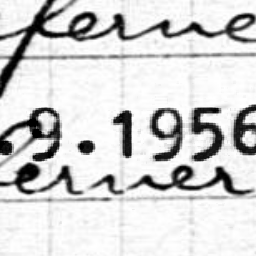 ferne
.9.1956
ferner